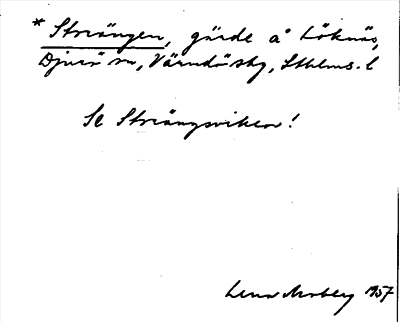 * Strängen, gärde å Löknäs,
Djurö sn, Värmdö skg, Sthlms. l
Se Strängsviken!
Lena Moberg 1957